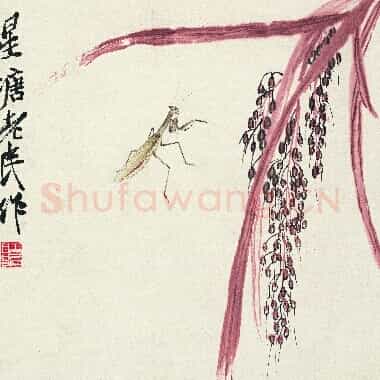 星塘老民作
Shufawang.CN